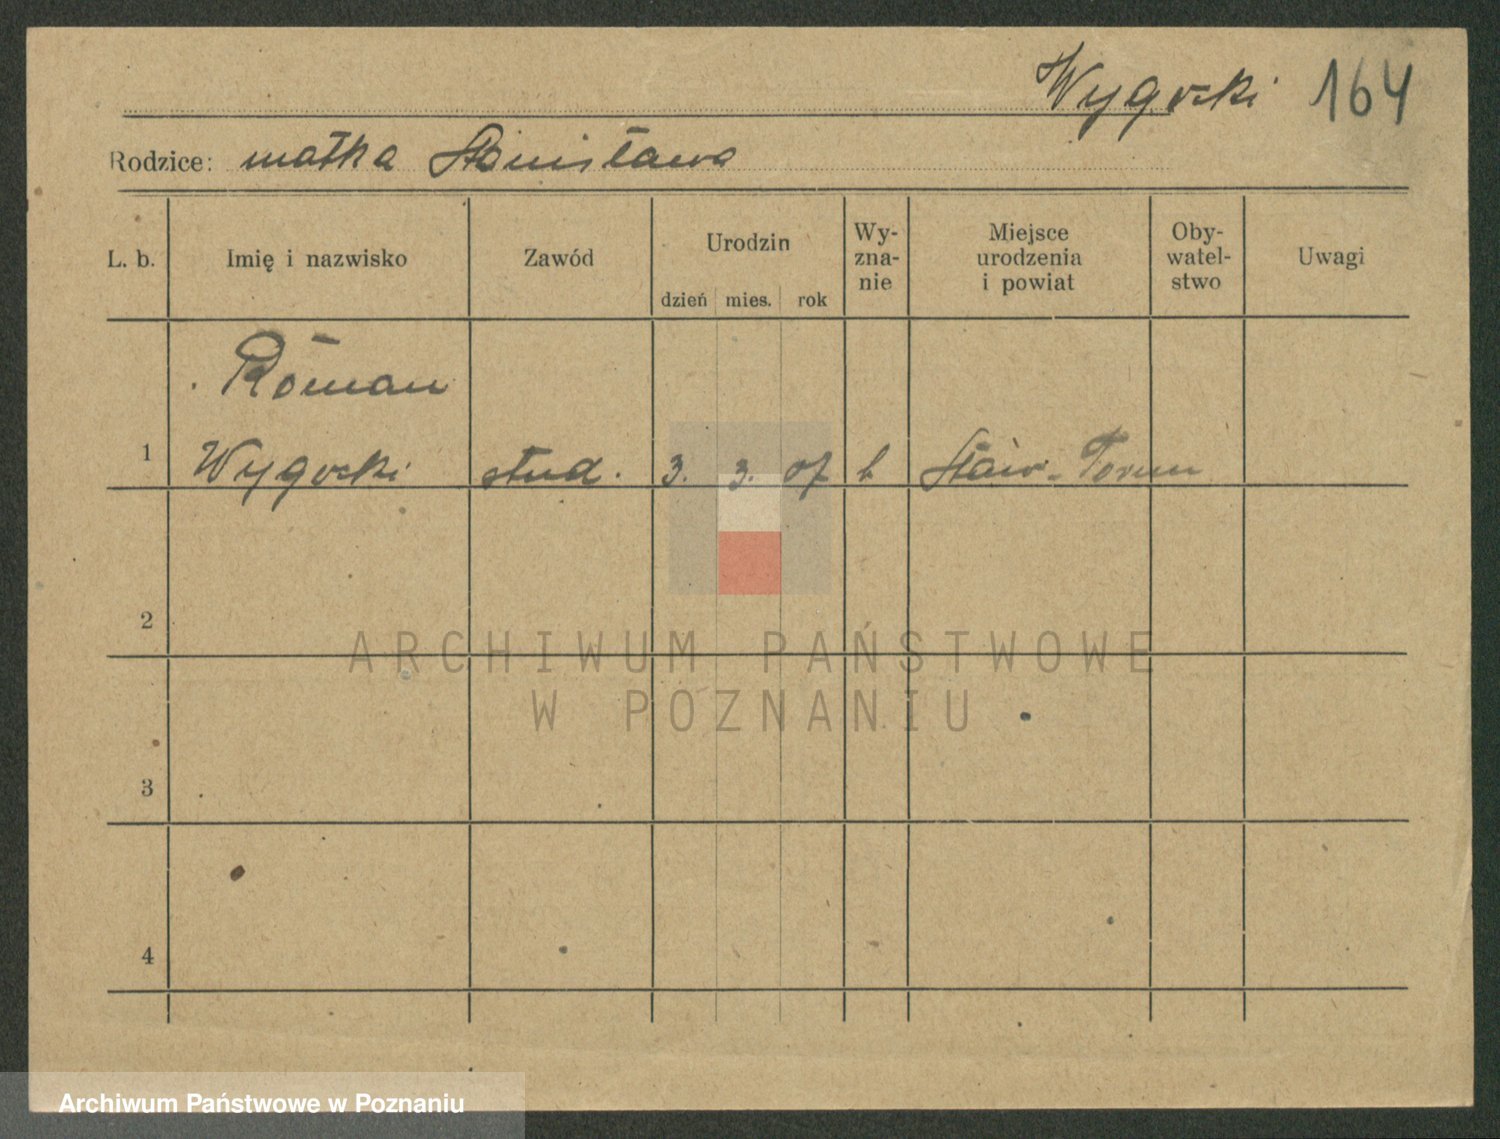 Wygocki 164
Rodzice: matka Stanisława
L. b. Imię i nazwisko Zawód Urodzin Wy-zna-nie Miejsce urodzenia i powiat Oby-watel-stwo Uwagi
dzień mies. rok
Roman
1 Wygocki stud. 3. 3. 07 k Toruń
2
ARCHIWUM PAŃSTWOWE
W POZNANIU
3
4
Archiwum Państwowe w Poznaniu